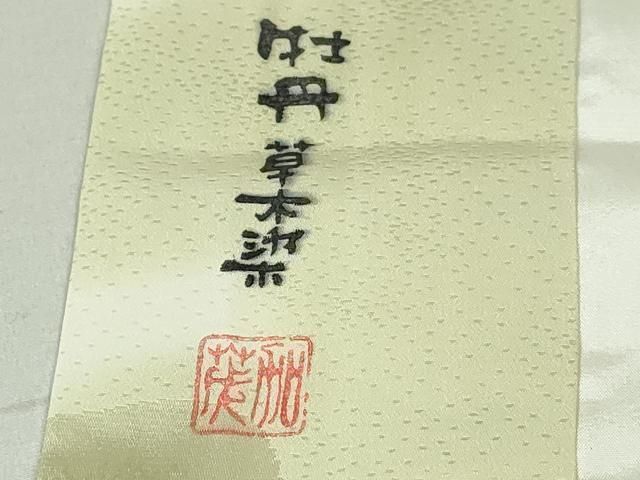 牡丹草木染